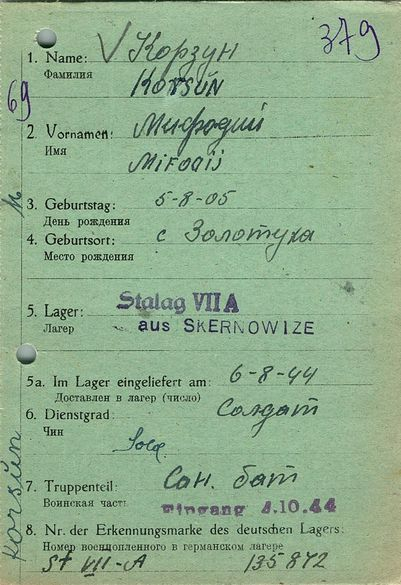 379
1. Name: Корзун
Фамилия
Korsün
69
2. Vornamen: Мифодий
Имя
Mifodij
3. Geburtstag: 5-8-05
День рождения
4. Geburtsort: с Золотуха
Место рождения
5. Lager: Stalag VII A
Лагерь aus SKERNOWIZE
5a. Im Lager eingeliefert am: 6-8-44
Доставлен в лагерь (число)
6. Dienstgrad: Солдат
Чин
Sold.
7. Truppenteil: Сан. бат
Воинская часть Eingang 4.10.44
8. Nr. der Erkennungsmarke des deutschen Lagers:
Номер военнопленного в германском лагере
St VII-A 135872
Korsün